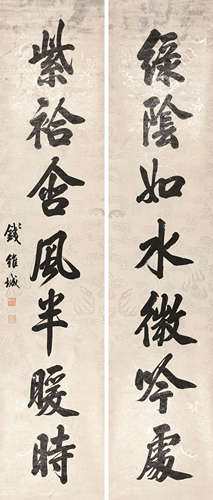 綠陰如水微吟處
紫袷含風半暖時
錢維城